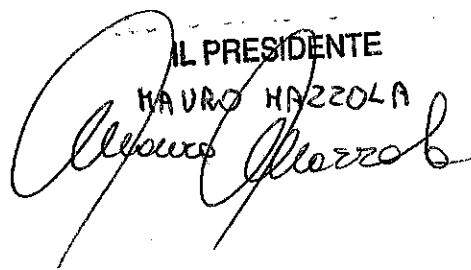 IL PRESIDENTE
MAURO MAZZOLA
Mauro Mazzola